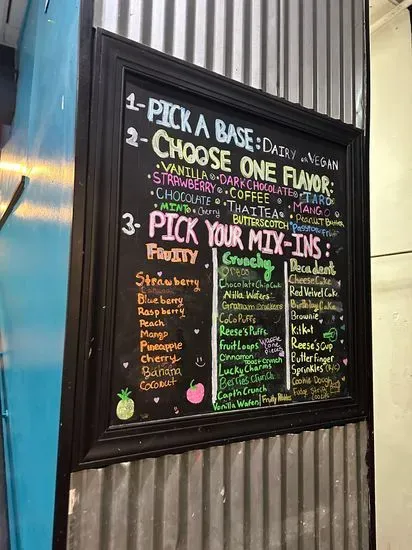 1- PICK A BASE: DAIRY or VEGAN
2- CHOOSE ONE FLAVOR:
VANILLA DARK CHOCOLATE TARO
STRAWBERRY COFFEE MANGO
CHOCOLATE THAI TEA Peanut Butter
MINT Cherry BUTTERSCOTCH Passion fruit
3- PICK YOUR MIX-INS:
FRUITY
Strawberry
Blueberry
Raspberry
Peach
Mango
Pineapple
Cherry
Banana
Coconut
Crunchy
Oreo
Chocolate Chip Cookie
Nilla Wafers
Graham Crackers
Coco Puffs
Reese's Puffs
Fruit Loops
Waffle Cone
Pieces
Cinnamon
Toast Crunch
Lucky Charms
Berries Crunch
Capt'n Crunch
Vanilla Wafer
Fruity Pebbles
Decadent
Cheese Cake
Red Velvet Cake
Birthday Cake
Brownie
KitKat
Reese's Cup
Butterfinger
Sprinkles
Cookie Dough